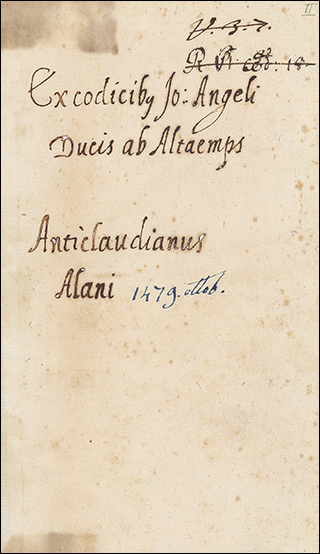 II
V. 3. 7.
Ex codicibꝫ Jo: Angeli
Ducis ab Altaemps
Anticlaudianus
Alani 1479. ottob.